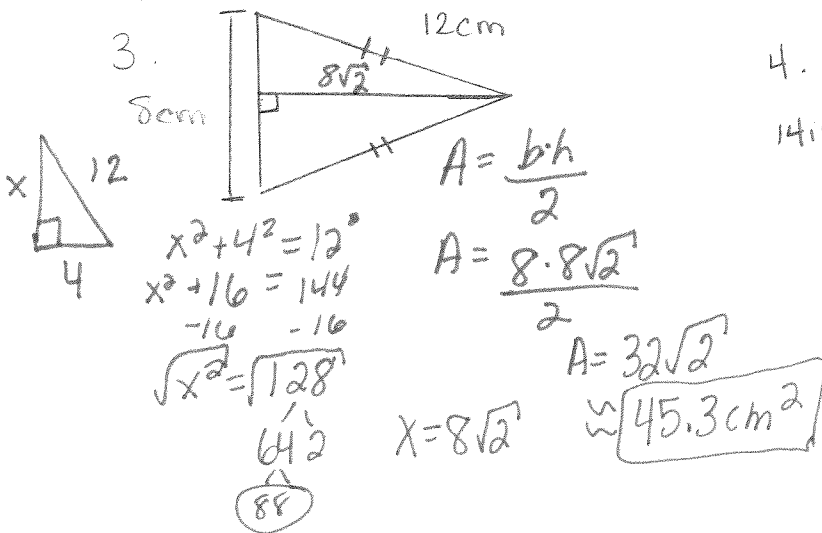 3.
12cm
8√2
8cm
4.
14i
x 12
4
A = b·h / 2
x² + 4² = 12²
x² + 16 = 144
-16 -16
√x² = √128
64 2
88
x = 8√2
A = 8·8√2 / 2
A = 32√2
≈ 45.3cm²